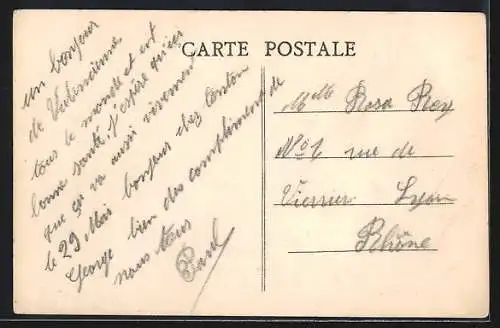 CARTE POSTALE
un bonjour
de Valencienne
tous le monde et est
bonne santé j'espère qu'ici
que ça va aussi vivement
le 29 Mai bonjour chez tonton
George bien des compliment de
nous tous
Paul
Mme Rosa Rey
No 6 rue de
Lyon
Rhône